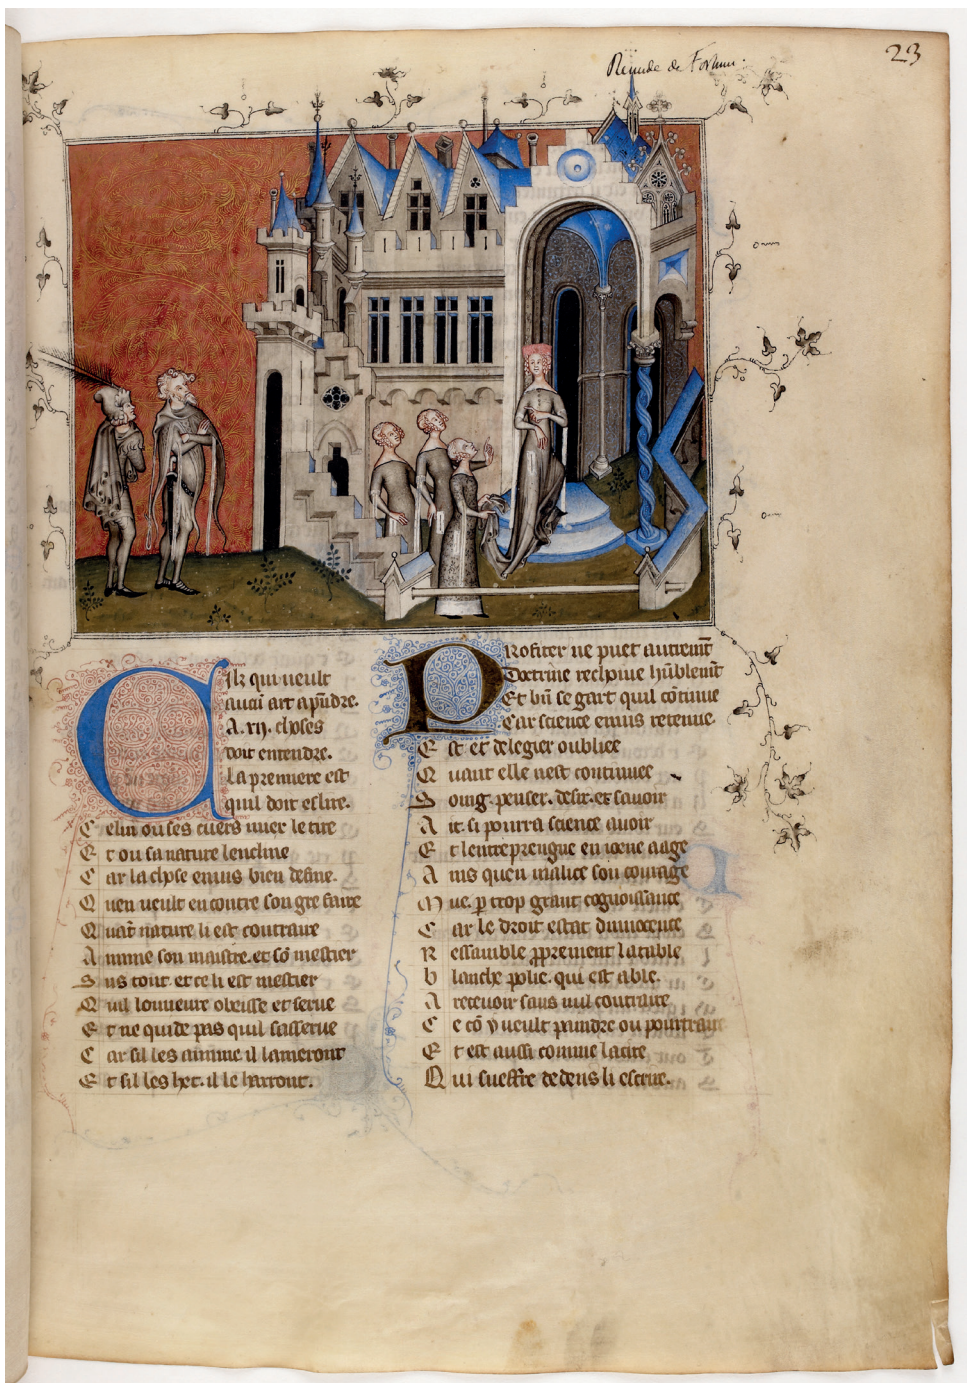 23
Remede de Fortune.
Cilz qui veult
aucun art aprẽdre.
A .xij. choses
doit entendre.
La premiere est
quil doit eslire.
Celui ou ses cuers miex le tire
Et ou sa nature lencline
Car la chose enuis bien define.
Quen veult en contre son gre faire
Quãt nature li est contraire
Aimme son maistre. et sõ mestier
Sus tout. et ce li est mestier
Quil lonneure obeisse et serue
Et ne quide pas quil sasserue
Car sil les aimme. il lameront
Et sil les het. il le harront.
Profiter ne puet autremẽt
Doctrine recoiue hũblemẽt
Et biẽ se gart quil cõtinue
Car science enuis retenue.
Est et de legier oubliee
Quant elle nest continuee
Soing. penser. desir. et sauoir
Ait. si pourra science auoir
Et lentreprengne en ioene aage
Ains quen malice son courage
Mue. ꝑ trop grant cognoissance
Car le droit estat dinnocence
Ressamble ꝓprement la table
blanche polie. qui est able.
A recevoir sans nul contraire
Ce cõ y veult paindre ou pourtraire
Et est aussi comme la cire
Qui sueffre dedens li escrire.